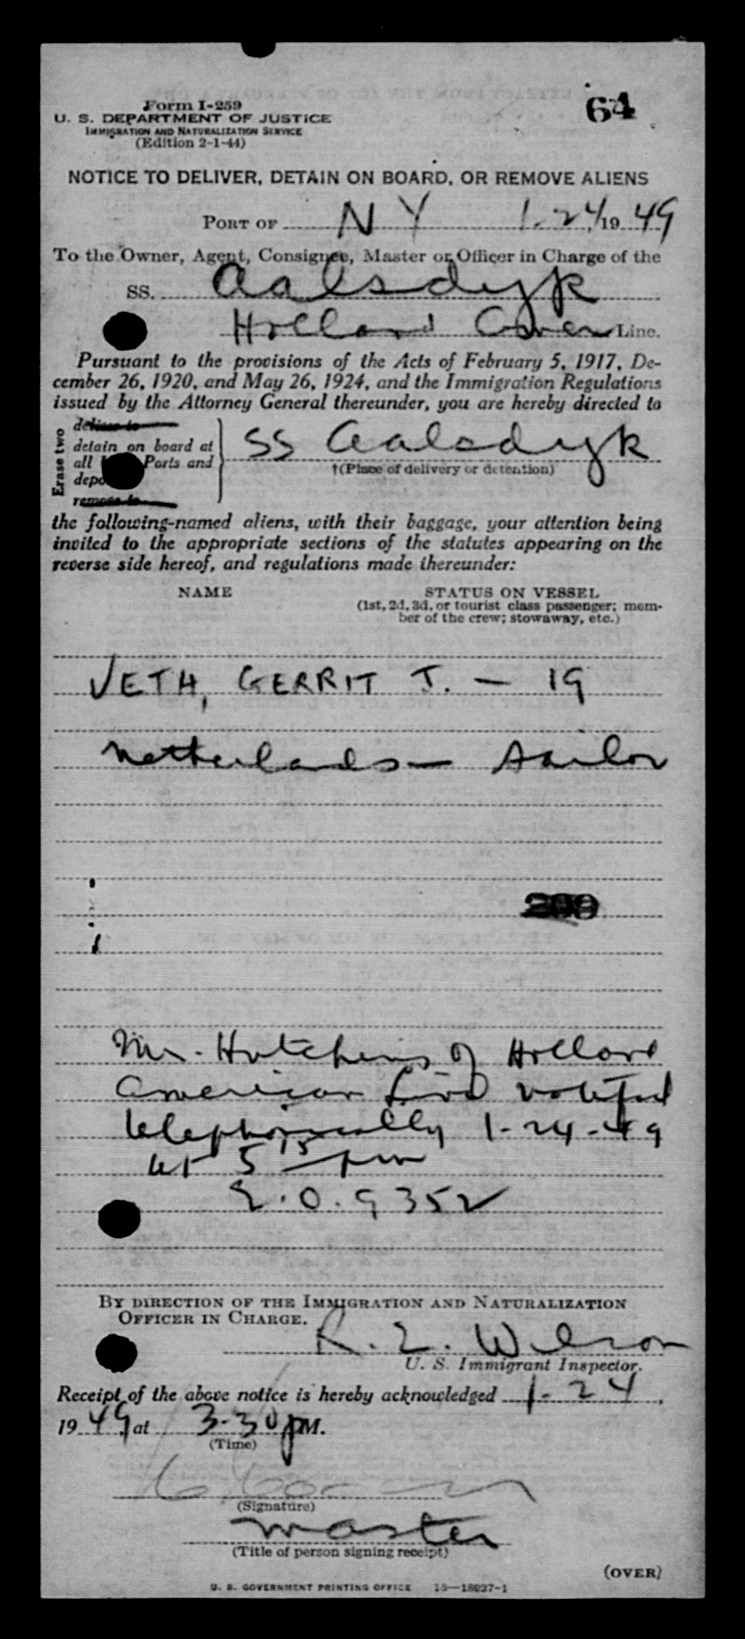 64
Form I-259
U. S. DEPARTMENT OF JUSTICE
IMMIGRATION AND NATURALIZATION SERVICE
(Edition 2-1-44)
NOTICE TO DELIVER, DETAIN ON BOARD, OR REMOVE ALIENS
PORT OF N Y 1-24, 19 49
To the Owner, Agent, Consignee, Master or Officer in Charge of the
SS. Aalsdyk
Holland Amer Line.
Pursuant to the provisions of the Acts of February 5, 1917, De-
cember 26, 1920, and May 26, 1924, and the Immigration Regulations
issued by the Attorney General thereunder, you are hereby directed to
Erase two
deliver to
detain on board at
all Ports and
remove to
SS Aalsdyk
†(Place of delivery or detention)
the following-named aliens, with their baggage, your attention being
invited to the appropriate sections of the statutes appearing on the
reverse side hereof, and regulations made thereunder:
NAME STATUS ON VESSEL
(1st, 2d, 3d, or tourist class passenger; mem-
ber of the crew; stowaway, etc.)
VETH, GERRIT J. - 19
Netherlands - Sailor
Mr. Hutchins of Holland
American Line notified
telephonically 1-24-49
at 5 15 pm
E.O. 9352
BY DIRECTION OF THE IMMIGRATION AND NATURALIZATION
OFFICER IN CHARGE.
R. E. Wilson
U. S. Immigrant Inspector.
Receipt of the above notice is hereby acknowledged 1-24,
19 49, at 3-30 pM.
(Time)
(Signature)
Master
(Title of person signing receipt)
(OVER)
U. S. GOVERNMENT PRINTING OFFICE 16—18027-1